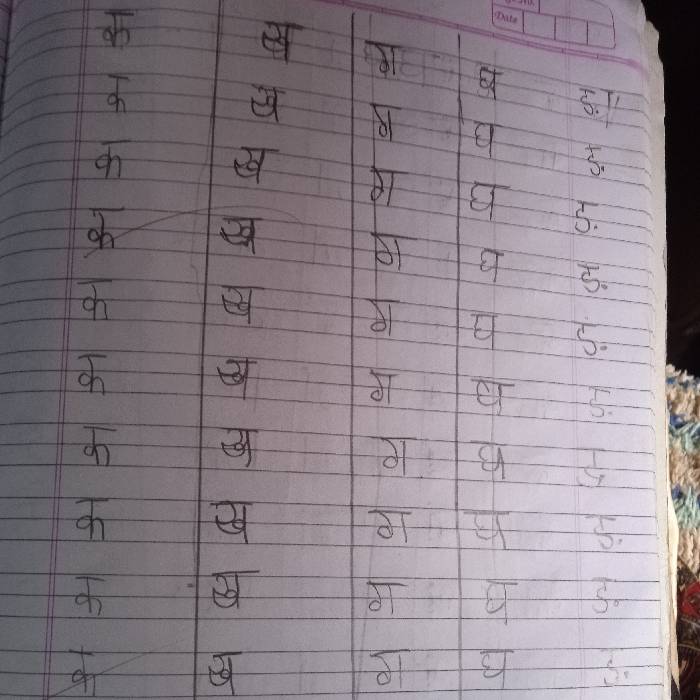 Date
क ख ग घ ङ
क ख ग घ ङ
क ख ग घ ङ
क ख ग घ ङ
क ख ग घ ङ
क ख ग घ ङ
क ख ग घ ङ
क ख ग घ ङ
क ख ग घ ङ
क ख ग घ ङ